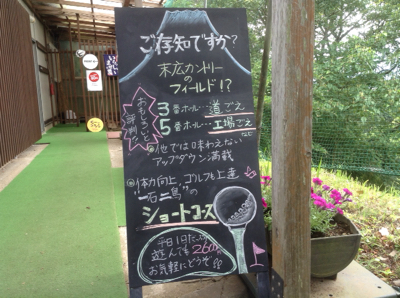 ご存知ですか?
末広カントリーの
フィールド!?
おもしろいと
評判!
3番ホール…道ごえ
5番ホール…工場ごえ
など
他では味わえない
アップダウン満載
体力向上、ゴルフも上達
"一石二鳥"の
ショートコース
平日1日たっぷり
遊んでも260
お気軽にどうぞ